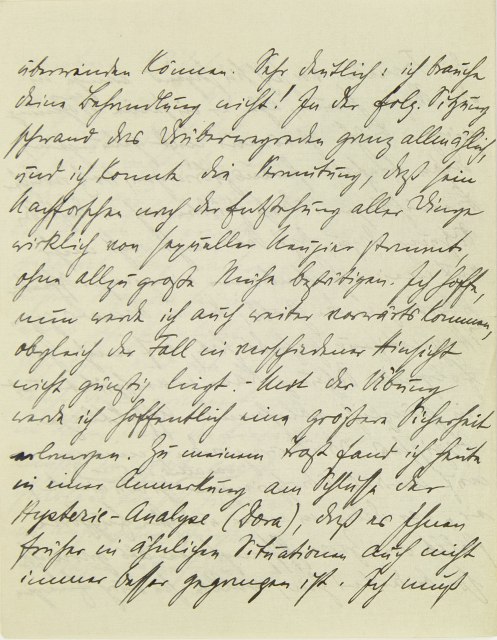 überwinden können. Sehr deutlich: ich brauche
deine Behandlung nicht! In der folg. Sitzung
schwand das Darüberwegreden ganz allmälich,
und ich konnte die Vermutung, daß sein
Nachforschen nach der Entstehung aller Dinge
wirklich von sexueller Neugier stammt,
ohne allzugroße Mühe bestätigen. Ich hoffe,
nun werde ich auch weiter vorwärts kommen,
obgleich der Fall in verschiedener Hinsicht
nicht günstig liegt. – Mit der Übung
werde ich hoffentlich eine größere Sicherheit
erlangen. Zu meinem Trost fand ich heute
in einer Anmerkung am Schluße der
Hysterie-Analyse (Dora), daß es Ihnen
früher in ähnlichen Situationen auch nicht
immer besser gegangen ist. Ich muß